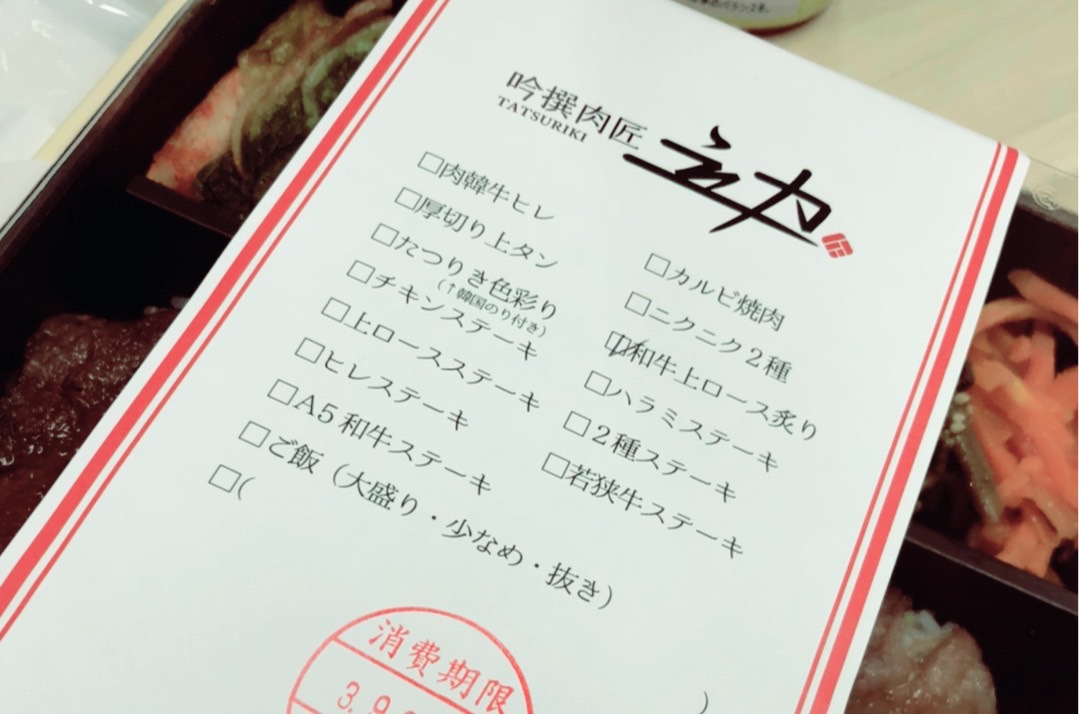 吟撰肉匠
TATSURIKI
立力
□肉韓牛ヒレ
□厚切り上タン
□たつりき色彩り
(↑韓国のり付き)
□チキンステーキ
□上ロースステーキ
□ヒレステーキ
□A5和牛ステーキ
□ご飯(大盛り・少なめ・抜き)
□(
)
□カルビ焼肉
□ニクニク2種
□和牛上ロース炙り
□ハラミステーキ
□2種ステーキ
□若狭牛ステーキ
消費期限
3.9.